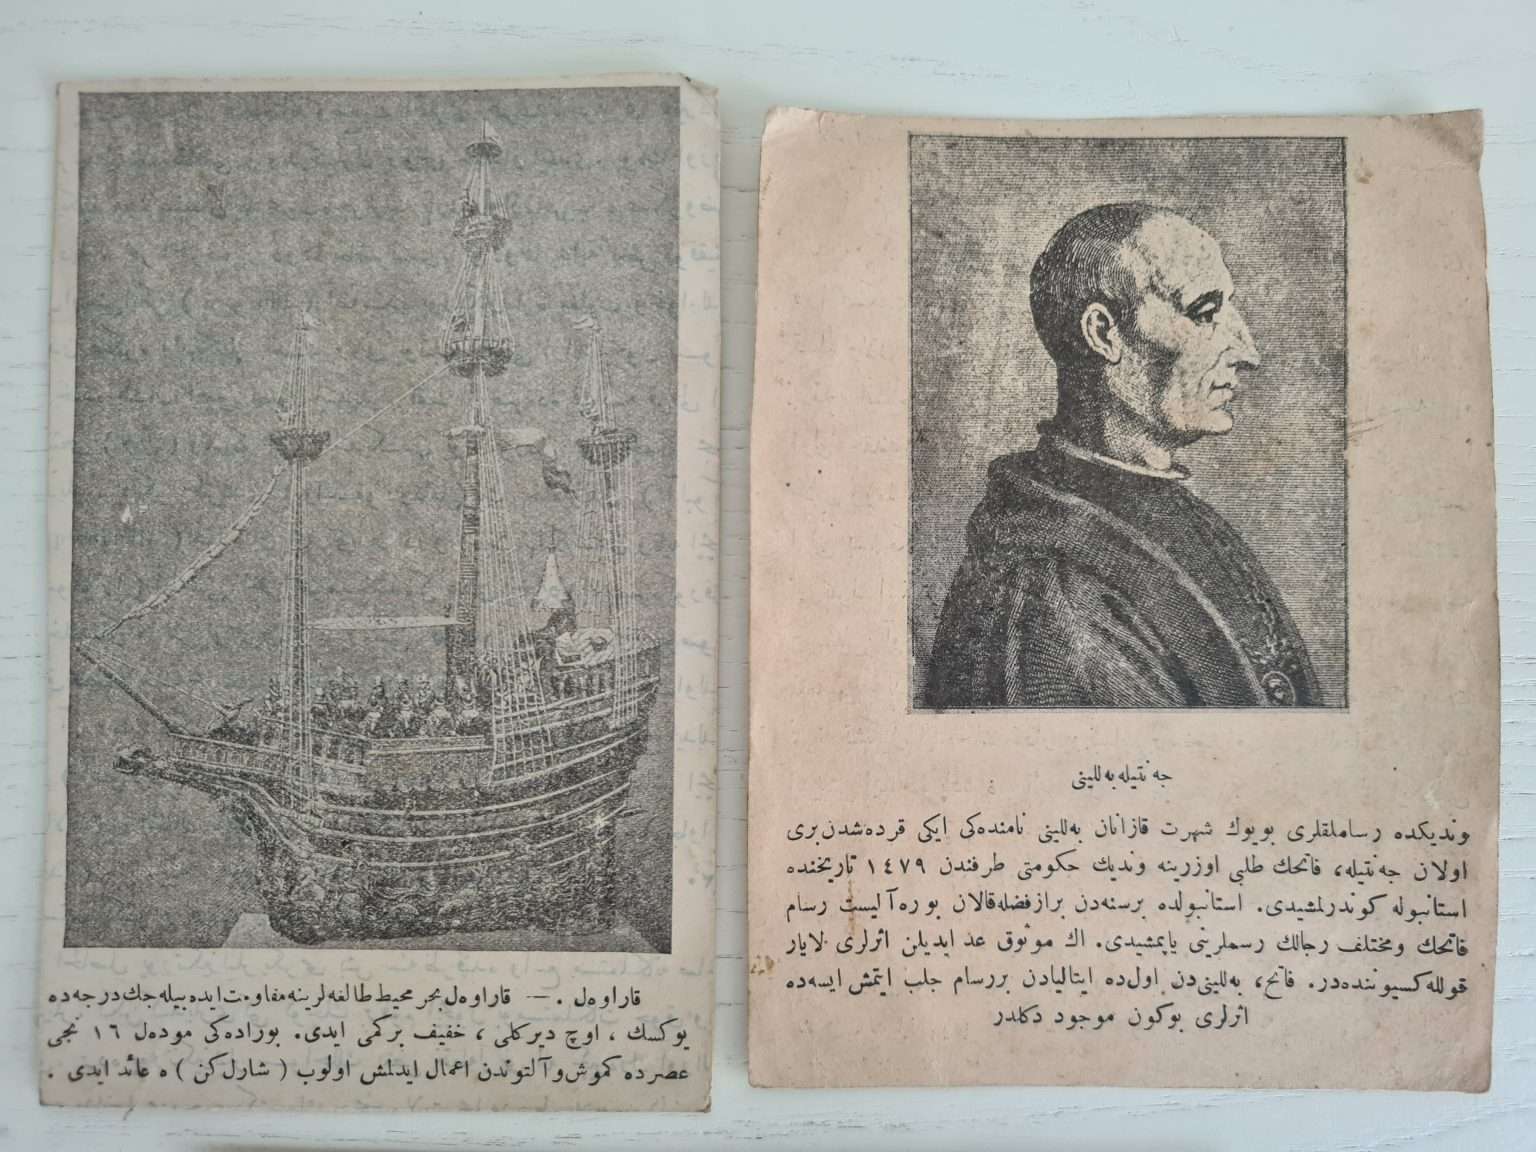 قاراوه‌ل . — قاراوه‌ل بحر محیط طالغه‌لرینه مقاومت ایده بیله‌جك درجه‌ده
یوكسك ، اوچ دیركلی ، خفیف بر كمی ایدی. بوراده‌كی موده‌ل ١٦ نجی
عصرده كموش و آلتوندن اعمال ایدلمش اولوب ( شارل‌كن ) ه عائد ایدی .
جه‌نتیله به‌للینی
وندیكده رساملقلری بویوك شهرت قازانان به‌للینی نامنده‌كی ایكی قرده‌شدن بری
اولان جه‌نتیله، فاتحك طلبی اوزرینه وندیك حكومتی طرفندن ١٤٧٩ تاریخنده
استانبوله كوندرلمشیدی. استانبولده برسنه‌دن برازفضله‌قالان بو ره‌آلیست رسام
فاتحك ومختلف رجالك رسملرینی یاپمشیدی. اك موثوق عد ایدیلن اثرلری لایار
قولله‌كسیوننده‌در. فاتح، به‌للینی‌دن اول‌ده ایتالیادن بررسام جلب ایتمش ایسه‌ده
اثرلری بوكون موجود دكلدر